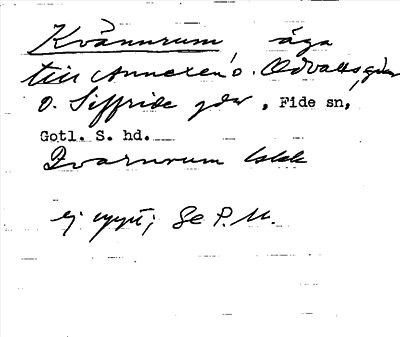 Kvännrum, äga
till Annexen o. Odvalls, gdar
o. Siffride gdr, Fide sn,
Gotl. S. hd.
Qvarnrum
ej uppt; Se P.M.